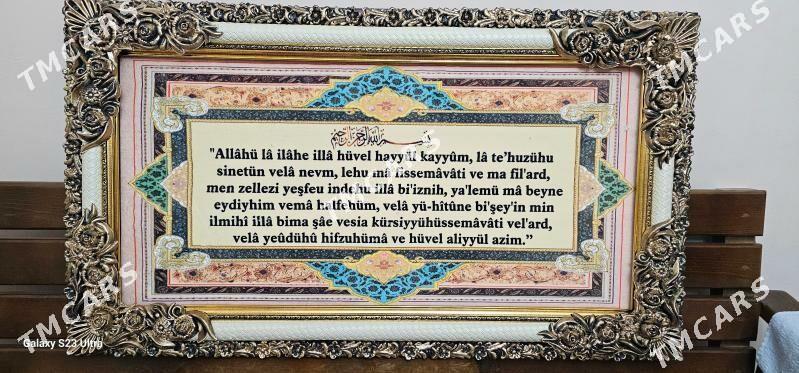 بسم الله الرحمن الرحيم
"Allâhü lâ ilâhe illâ hüvel hayyül kayyûm, lâ te'huzühu
sinetün velâ nevm, lehu mâ fissemâvâti ve ma fil'ard,
men zellezi yeşfeu indehu illâ bi'iznih, ya'lemü mâ beyne
eydiyhim vemâ halfehüm, velâ yü-hîtûne bi'şey'in min
ilmihî illâ bima şâe vesia kürsiyyühüssemâvâti vel'ard,
velâ yeûdühû hifzuhümâ ve hüvel aliyyül azim."
Galaxy S23 Ultra
TMCARS
TMCARS
TMCARS
TMCARS
TMCARS
TMCARS
TMCARS